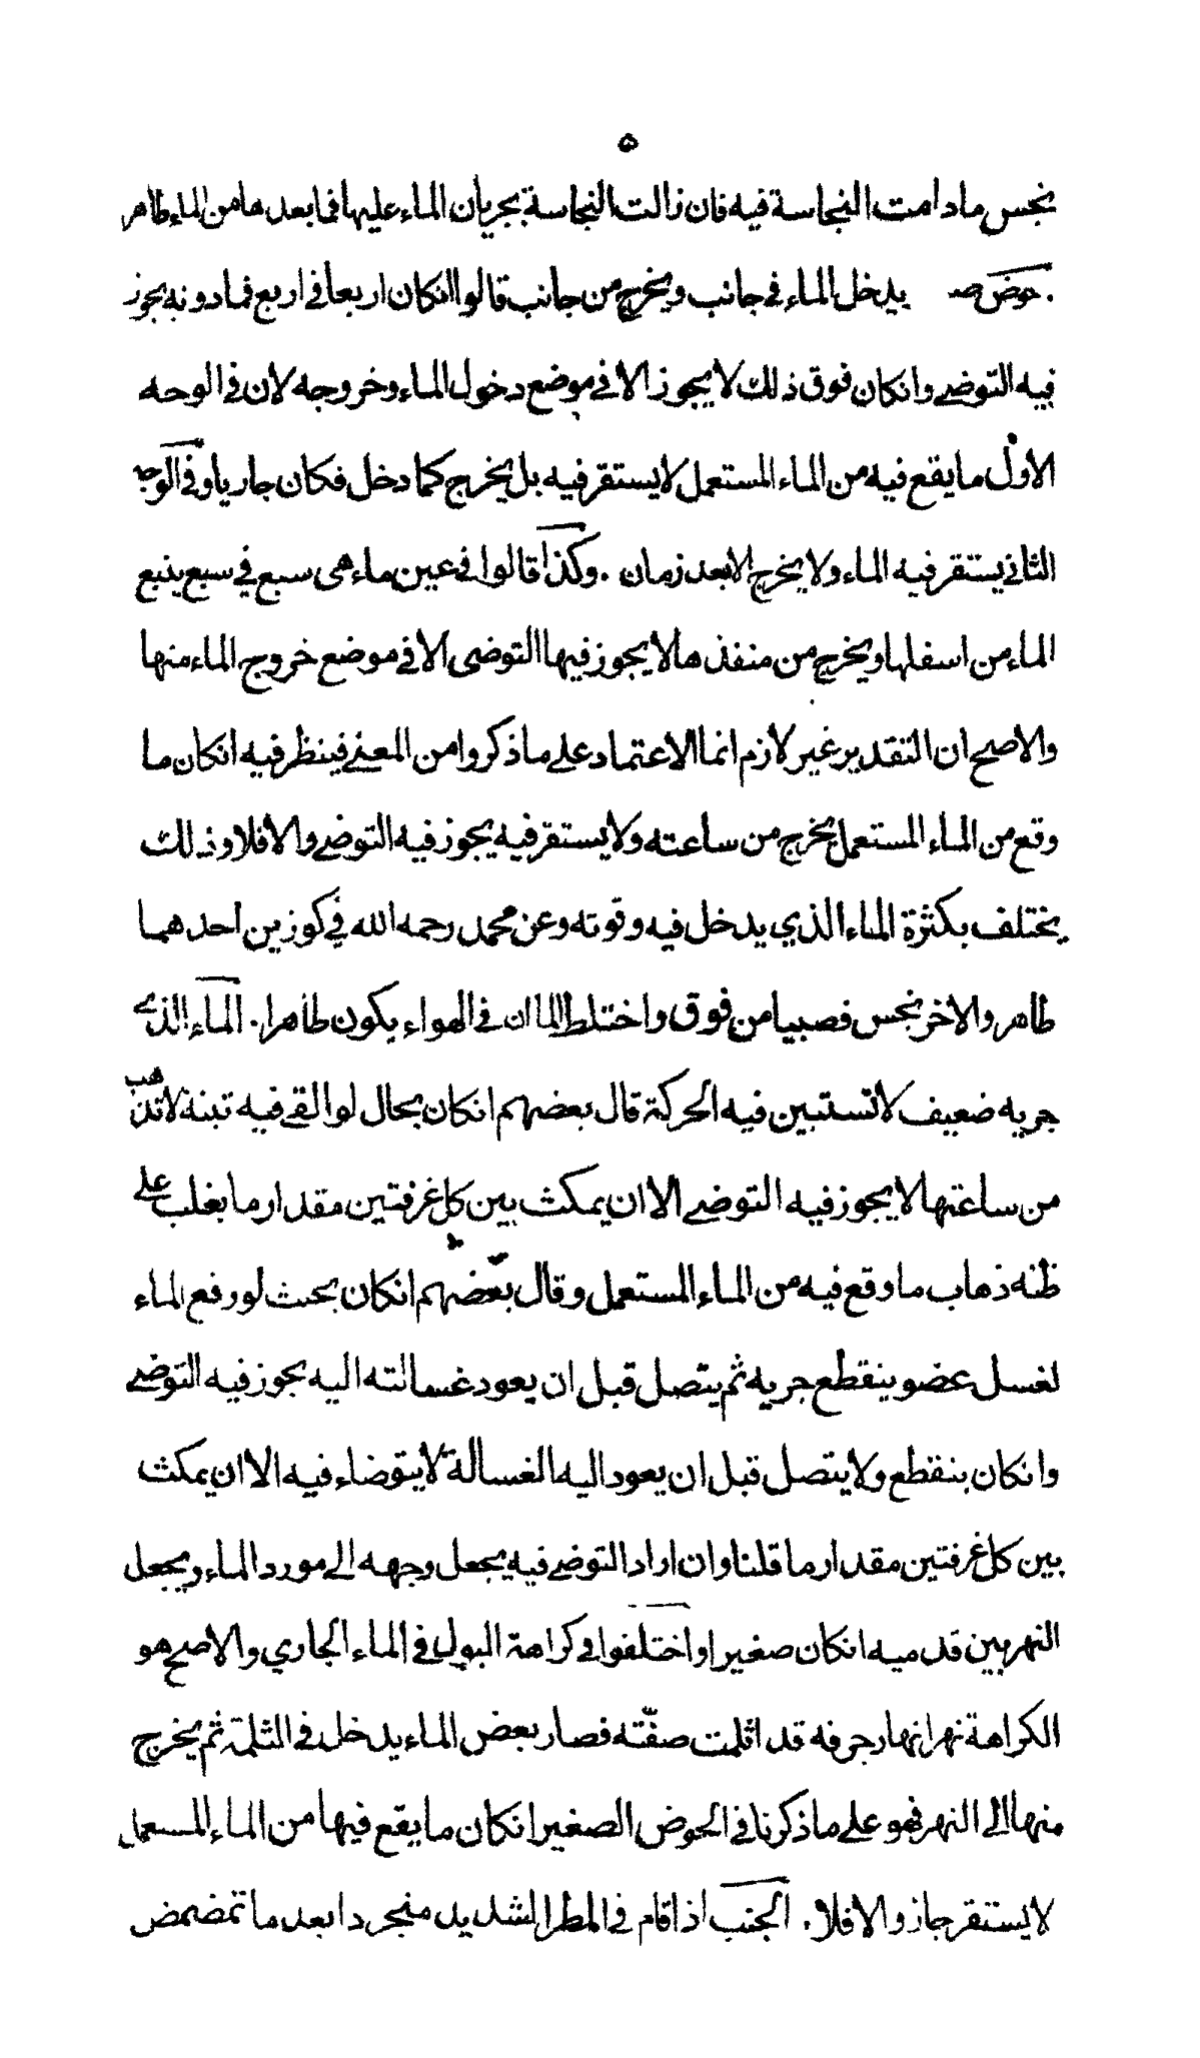 ٥
نجس مادامت النجاسة فيه فان زالت النجاسة بجريان الماء عليها فما بعدها من الماء طاهر
. حوض صـ يدخل الماء في جانب ويخرج من جانب قالوا انكان اربعا في اربع فما دونه يجوز
فيه التوضي وانكان فوق ذلك لا يجوز الا في موضع دخول الماء وخروجه لان في الوجه
الاول ما يقع فيه من الماء المستعمل لا يستقر فيه بل يخرج كما دخل فكان جاريا وفي الوجه
الثاني يستقر فيه الماء ولا يخرج الا بعد زمان . وكذا قالوا في عين ماء هي سبع في سبع ينبع
الماء من اسفلها ويخرج من منفذها لا يجوز فيها التوضي الا في موضع خروج الماء منها
والاصح ان التقدير غير لازم انما الاعتماد على ما ذكروا من المعنى فينظر فيه انكان ما
وقع من الماء المستعمل يخرج من ساعته ولا يستقر فيه يجوز فيه التوضي والا فلا وذلك
يختلف بكثرة الماء الذي يدخل فيه وقوته وعن محمد رحمه الله في كوزين احدهما
طاهر والاخر نجس فصبا من فوق واختلط الماان في الهواء يكون طاهرا . الماء الذي
جريه ضعيف لا تستبين فيه الحركة قال بعضهم انكان بحال لو القي فيه تبنة لا تذهب
من ساعتها لا يجوز فيه التوضي الا ان يمكث بين كل غرفتين مقدار ما يغلب على
ظنه ذهاب ما وقع فيه من الماء المستعمل وقال بعضهم انكان بحيث لو رفع الماء
لغسل عضو ينقطع جريه ثم يتصل قبل ان يعود غسالته اليه يجوز فيه التوضي
وانكان ينقطع ولا يتصل قبل ان يعود اليه الغسالة لا يتوضاء فيه الا ان يمكث
بين كل غرفتين مقدار ما قلنا وان اراد التوضي فيه يجعل وجهه الى مورد الماء ويجعل
النهر بين قدميه انكان صغيرا واختلفوا في كراهة البول في الماء الجاري والاصح هو
الكراهة نهر انهار جرفه قد اثلمت صفّته فصار بعض الماء يدخل في الثلمة ثم يخرج
منها الى النهر فهو على ما ذكرنا في الحوض الصغير انكان ما يقع فيها من الماء المستعمل
لا يستقر جاز والا فلا . الجنب اذا قام في المطر الشديد منجردا بعد ما تمضمض